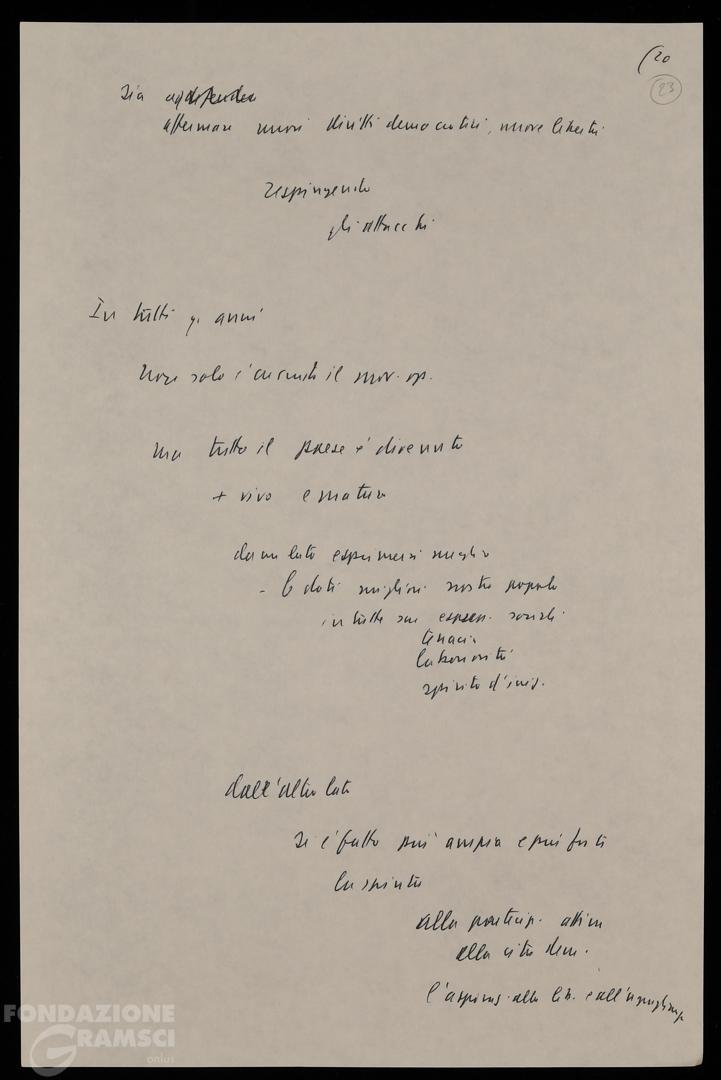 (20
23
Sia a difendere
affermare nuovi diritti democratici, nuove libertà
respingendo
gli attacchi
In tutti q. anni
Non solo è cresciuto il mov. op.
ma tutto il paese è divenuto
+ vivo e maturo
da un lato esprimersi meglio
- le doti migliori nostro popolo
in tutte sue espress. sociali
tenacia
laboriosità
spirito d'iniz.
dall'altro lato
si è fatta più ampia e più forte
la spinta
alla partecip. attiva
alla vita dem.
l'aspiraz. alla lib. e all'eguaglianza
FONDAZIONE
GRAMSCI
onlus